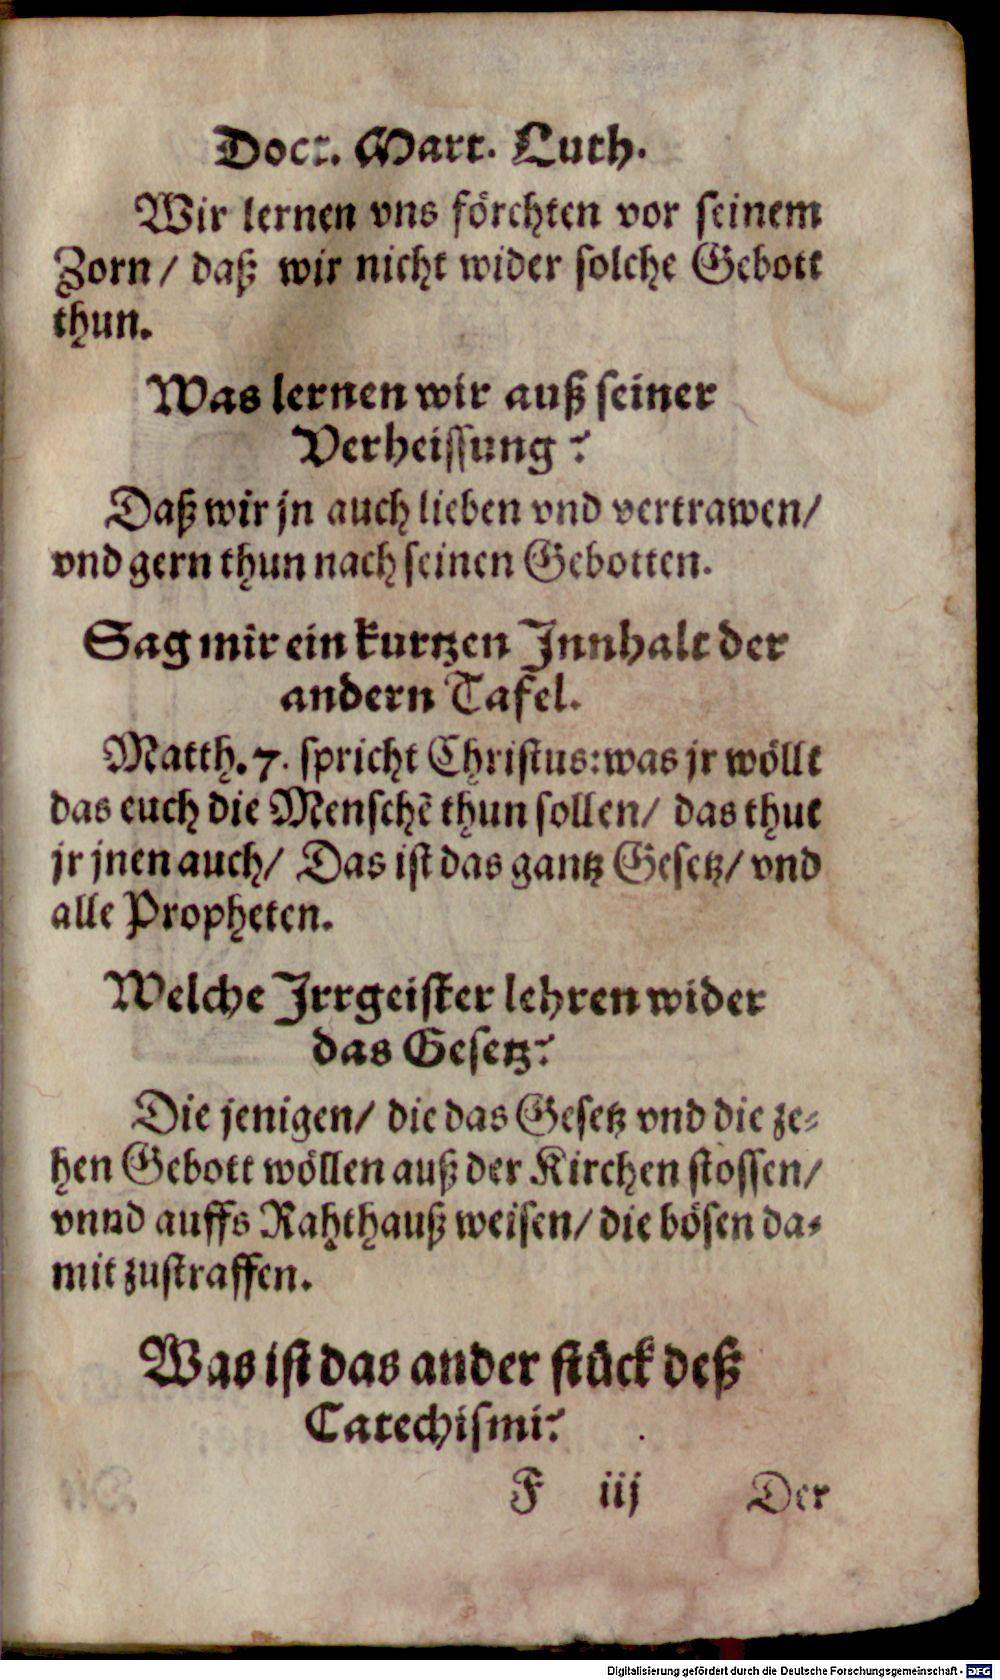 Doct. Mart. Luth.
Wir lernen vns förchten vor seinem
Zorn/ daß wir nicht wider solche Gebott
thun.
Was lernen wir auß seiner
Verheissung?
Daß wir jn auch lieben vnd vertrawen/
vnd gern thun nach seinen Gebotten.
Sag mir ein kurtzen Jnnhalt der
andern Tafel.
Matth. 7. spricht Christus: was jr wöllt
das euch die Menschẽ thun sollen/ das thut
jr jnen auch/ Das ist das gantz Gesetz/ vnd
alle Propheten.
Welche Jrrgeister lehren wider
das Gesetz?
Die jenigen/ die das Gesetz vnd die ze-
hen Gebott wöllen auß der Kirchen stossen/
vnnd auffs Rahthauß weisen/ die bösen da-
mit zustraffen.
Was ist das ander stück deß
Catechismi?
F iij Der
Digitalisierung gefördert durch die Deutsche Forschungsgemeinschaft - DFG